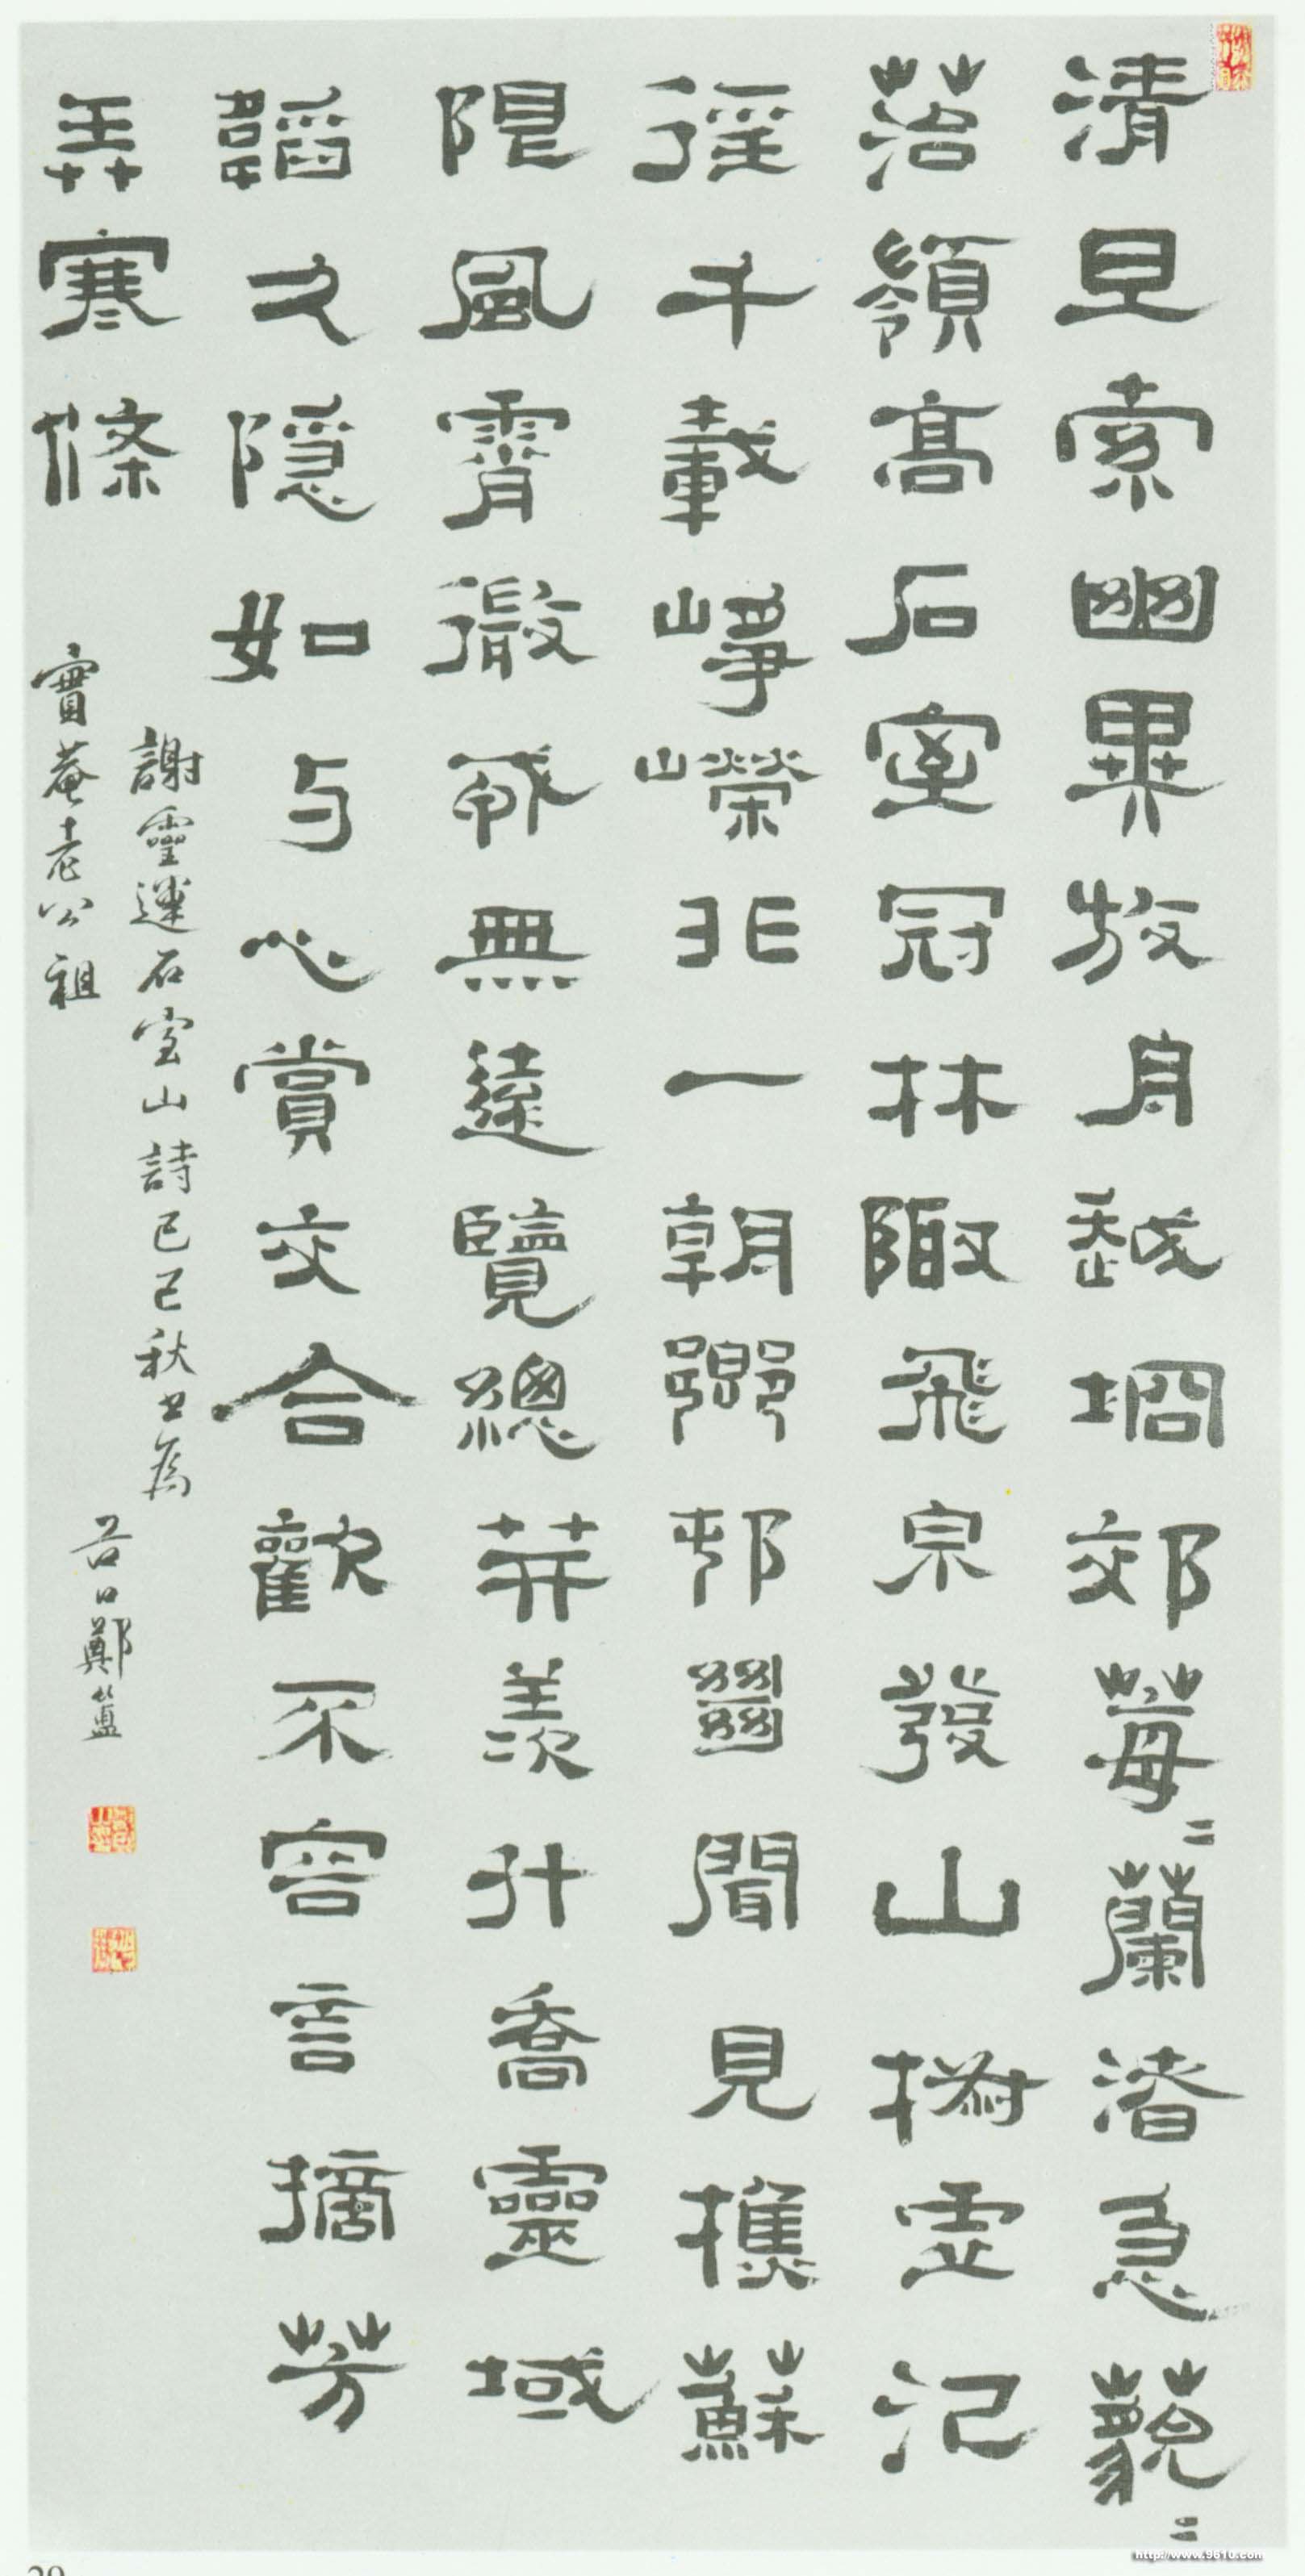 清旦索幽異放舟越坰郊莓〻蘭渚急藐〻
菭嶺高石室冠林陬飛泉發山椒虛汜
徑千載崢嶸非一朝鄉邨𢇍聞見樵蘇
限風霄微戎無遠覽總笄羨升喬靈域
韜久隱如与心賞交合歡不容言摘芳
弄寒條
謝靈運石室山詩己巳秋書為
實菴老公祖
谷口鄭簠
http://www.9610.com